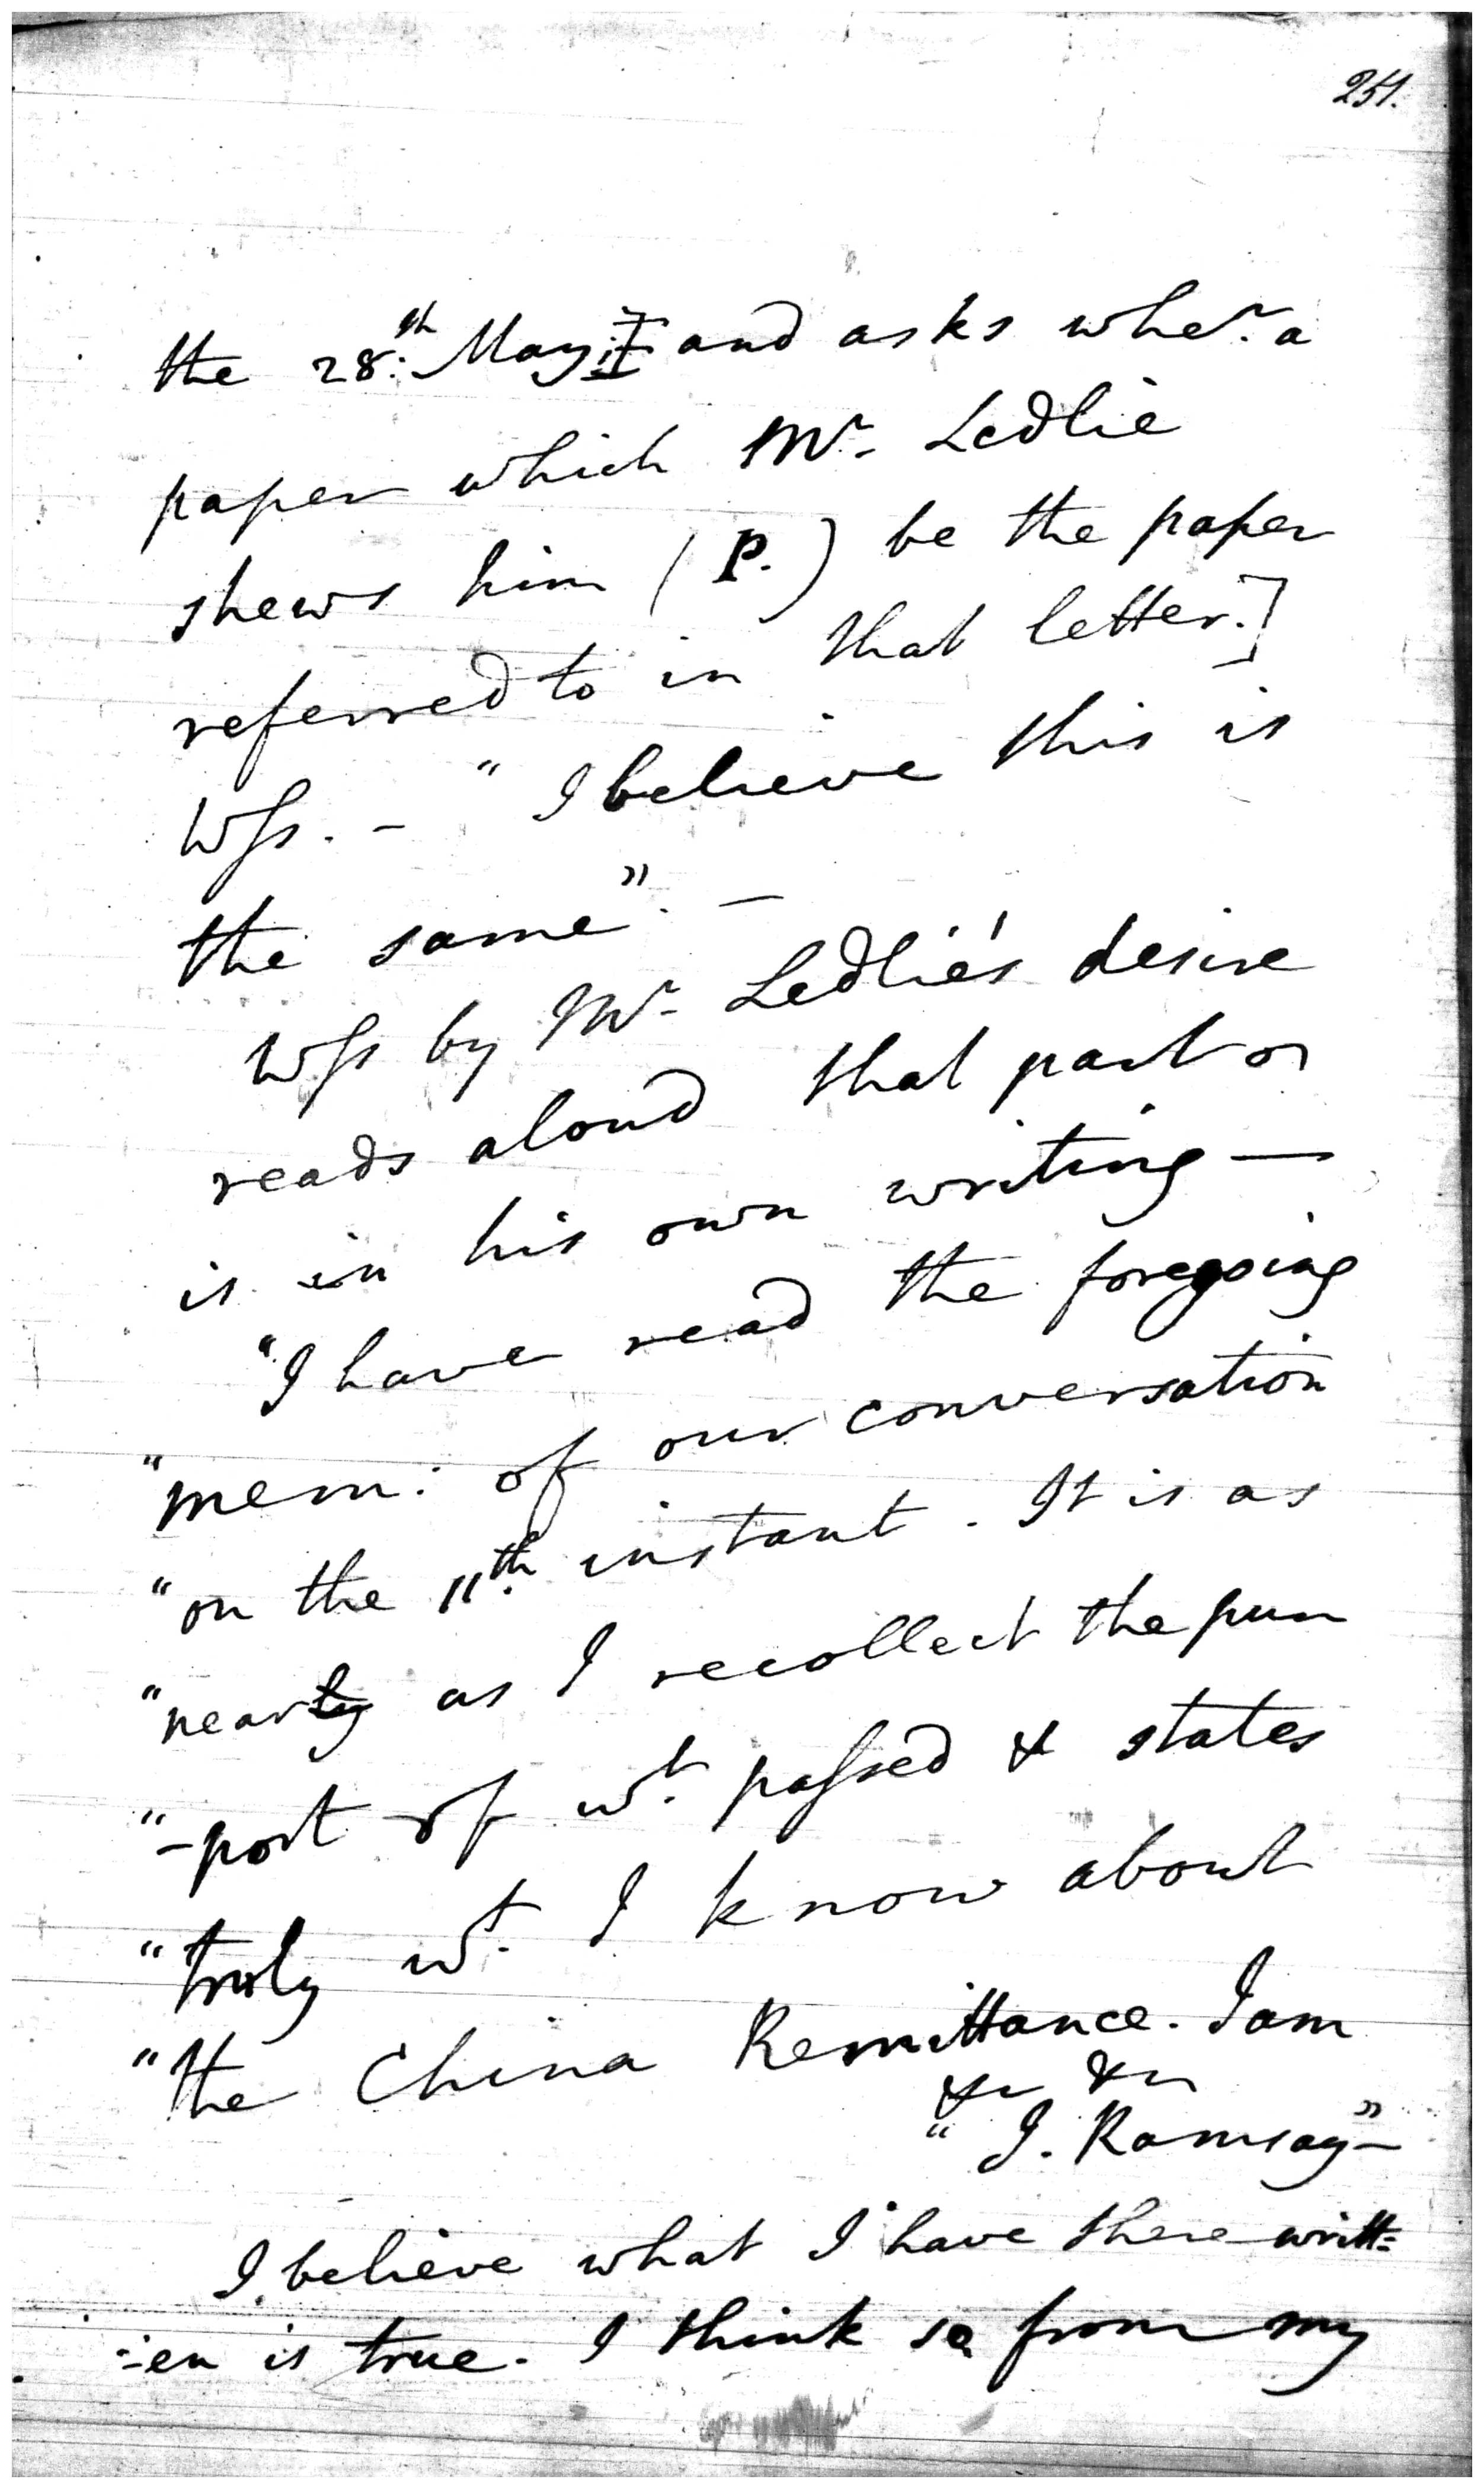 251.
the 28:th May and asks whe.r a
paper which Mr. Ledlie
shews him (P.) be the paper
referred to in that letter.]
Wss. - "I believe this is
the same". -
Wss by Mr. Ledlie's desire
reads aloud that part or
is in his own writing —
"I have read the foregoing
"mem: of our conversation
"on the 11th. instant. It is as
"nearly as I recollect the pur
"-port of wt. passed & states
"truly wt. I know about
"the China Remittance. I am
&c &c
" J. Ramsay" -
I believe what I have there writt=
=en is true. I think so from my